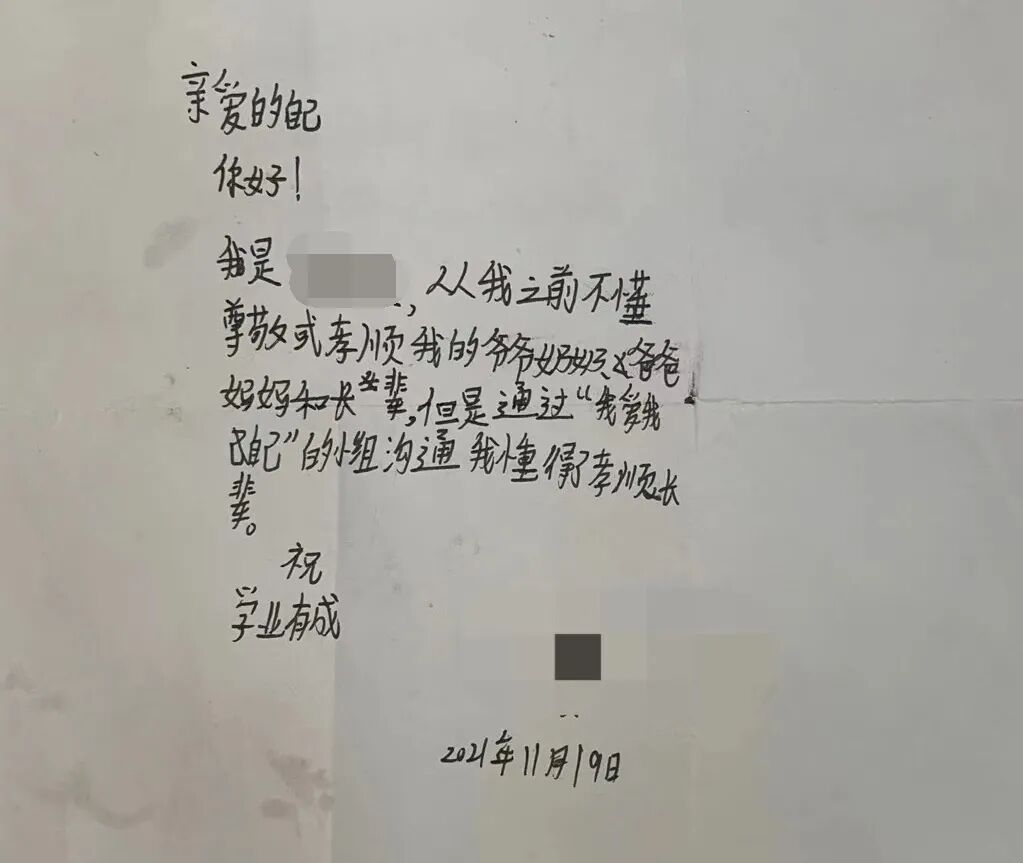 亲爱的自己
你好!
我是 ,从我之前不懂
尊敬或孝顺我的爷爷奶奶、爸爸
妈妈和长辈,但是通过“我爱我
自己”的小组沟通我懂得了孝顺长
辈。
祝
学业有成
2021年11月19日